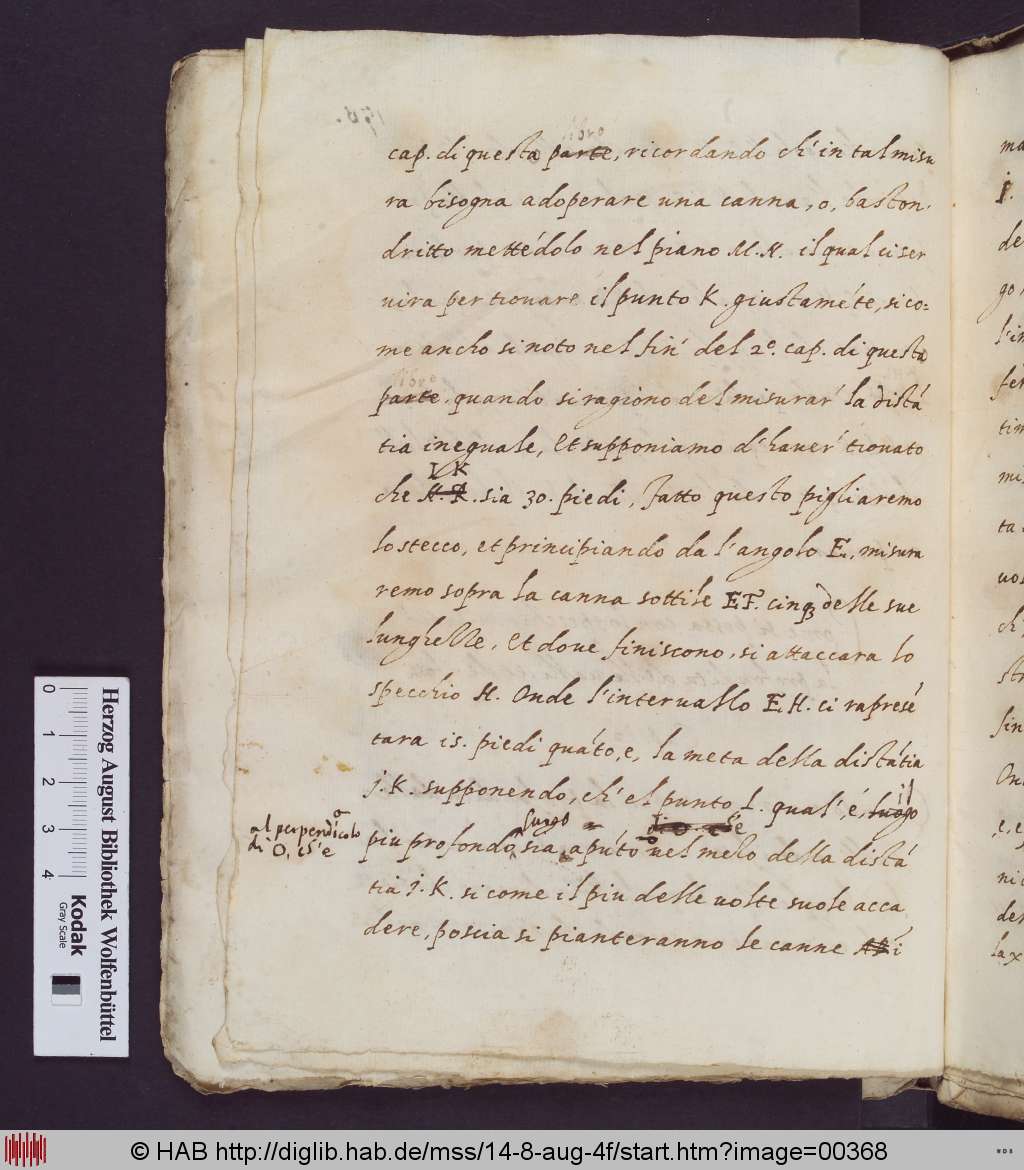 libro
cap. di questa parte, ricordando ch' in tal misu
ra bisogna adoperare una canna, o, baston
dritto metté́dolo nel piano M. N. il qual ci ser
uira per trouare il punto K. giustamé́te, si co=
me ancho si noto nel fin' del 2º. cap. di questa
libro
parte, quando si ragiono del misurar' la distá
tia inequale, Et supponiamo d' hauer' trouato
I K
che sia 30. piedi, fatto questo pigliaremo
lo stecco, et principiando da l' angolo E., misura
remo sopra la canna sottile E F. cinq3 delle sue
lunghelle, Et doue finiscono, si attaccara lo
specchio H. Onde l' interuallo E. H. ci rapresé
tara 15. piedi quáto, e, la meta della distátia
j. K. supponendo, ch' el punto L. qual', é, luogo
il
luogo
piu profondo, sia apúto nel mezo della distá
al perpendicolo
di O, cis' e
tia j. K. si come il piu delle uolte suole acca
dere, poscia si pianteranno le canne
Herzog August Bibliothek Wolfenbüttel
0 1 2 3 4
Kodak
Gray Scale
© HAB http://diglib.hab.de/mss/14-8-aug-4f/start.htm?image=00368